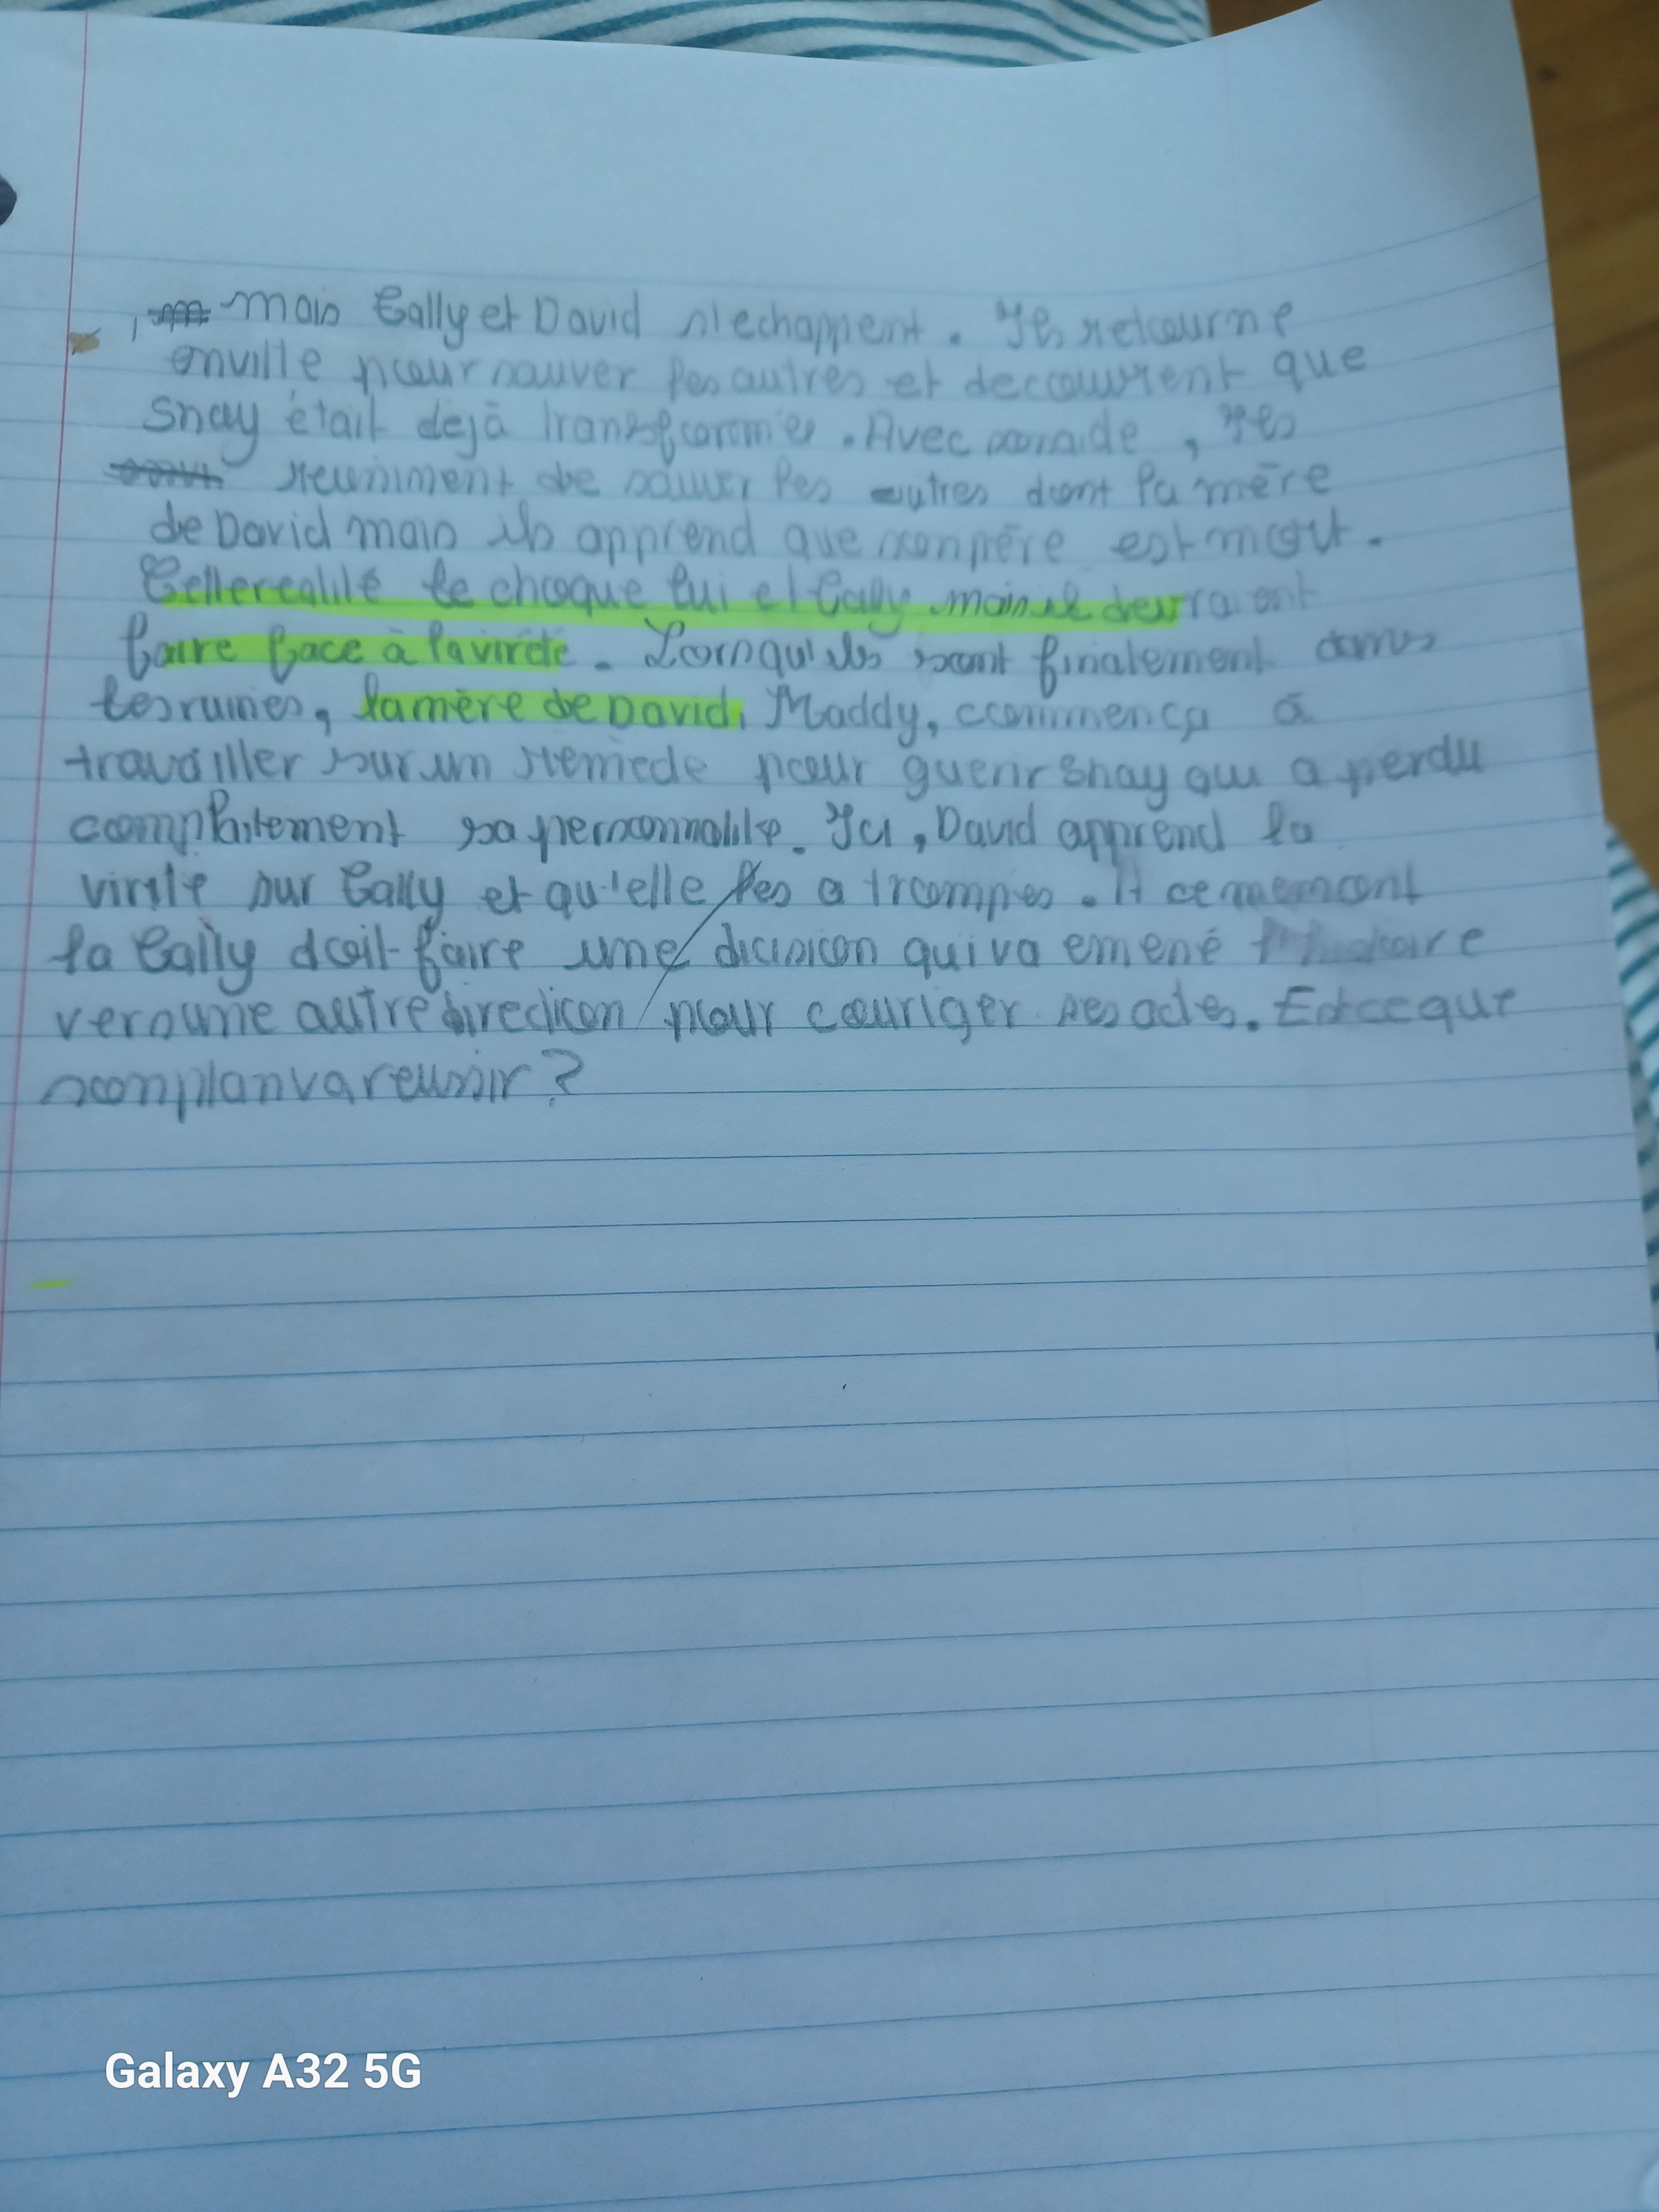 , mais Cally et David s'echappent. Ils retourne
en ville pour sauver les autres et decouvrent que
Snay était déjà transformés. Avec son aide, ils
reuniment de sauver les autres dont la mère
de David mais ils apprend que son père est mort.
Cette realité le choque lui et Cally mais il devraient
faire face à la vireté. Lorsqu'ils sont finalement dans
les ruines, la mère de David, Maddy, commença à
travailler sur un remede pour guerir Snay qui a perdu
complaitement sa personnalité. Ici, David apprend la
virité sur Cally et qu'elle les a trompés. A ce moment
la Cally doit faire une dicision qui va emené l'histoire
vers une autre direction pour couriger ses actes. Est ce que
son plan va reussir?
Galaxy A32 5G